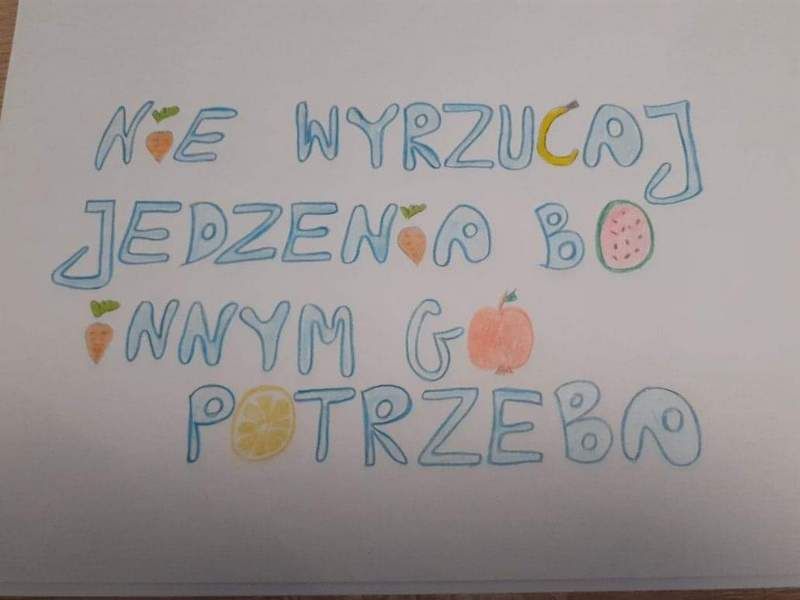 NiE WYRZUCAJ
JEDZENiA BO
iNNYM GO
POTRZEBA